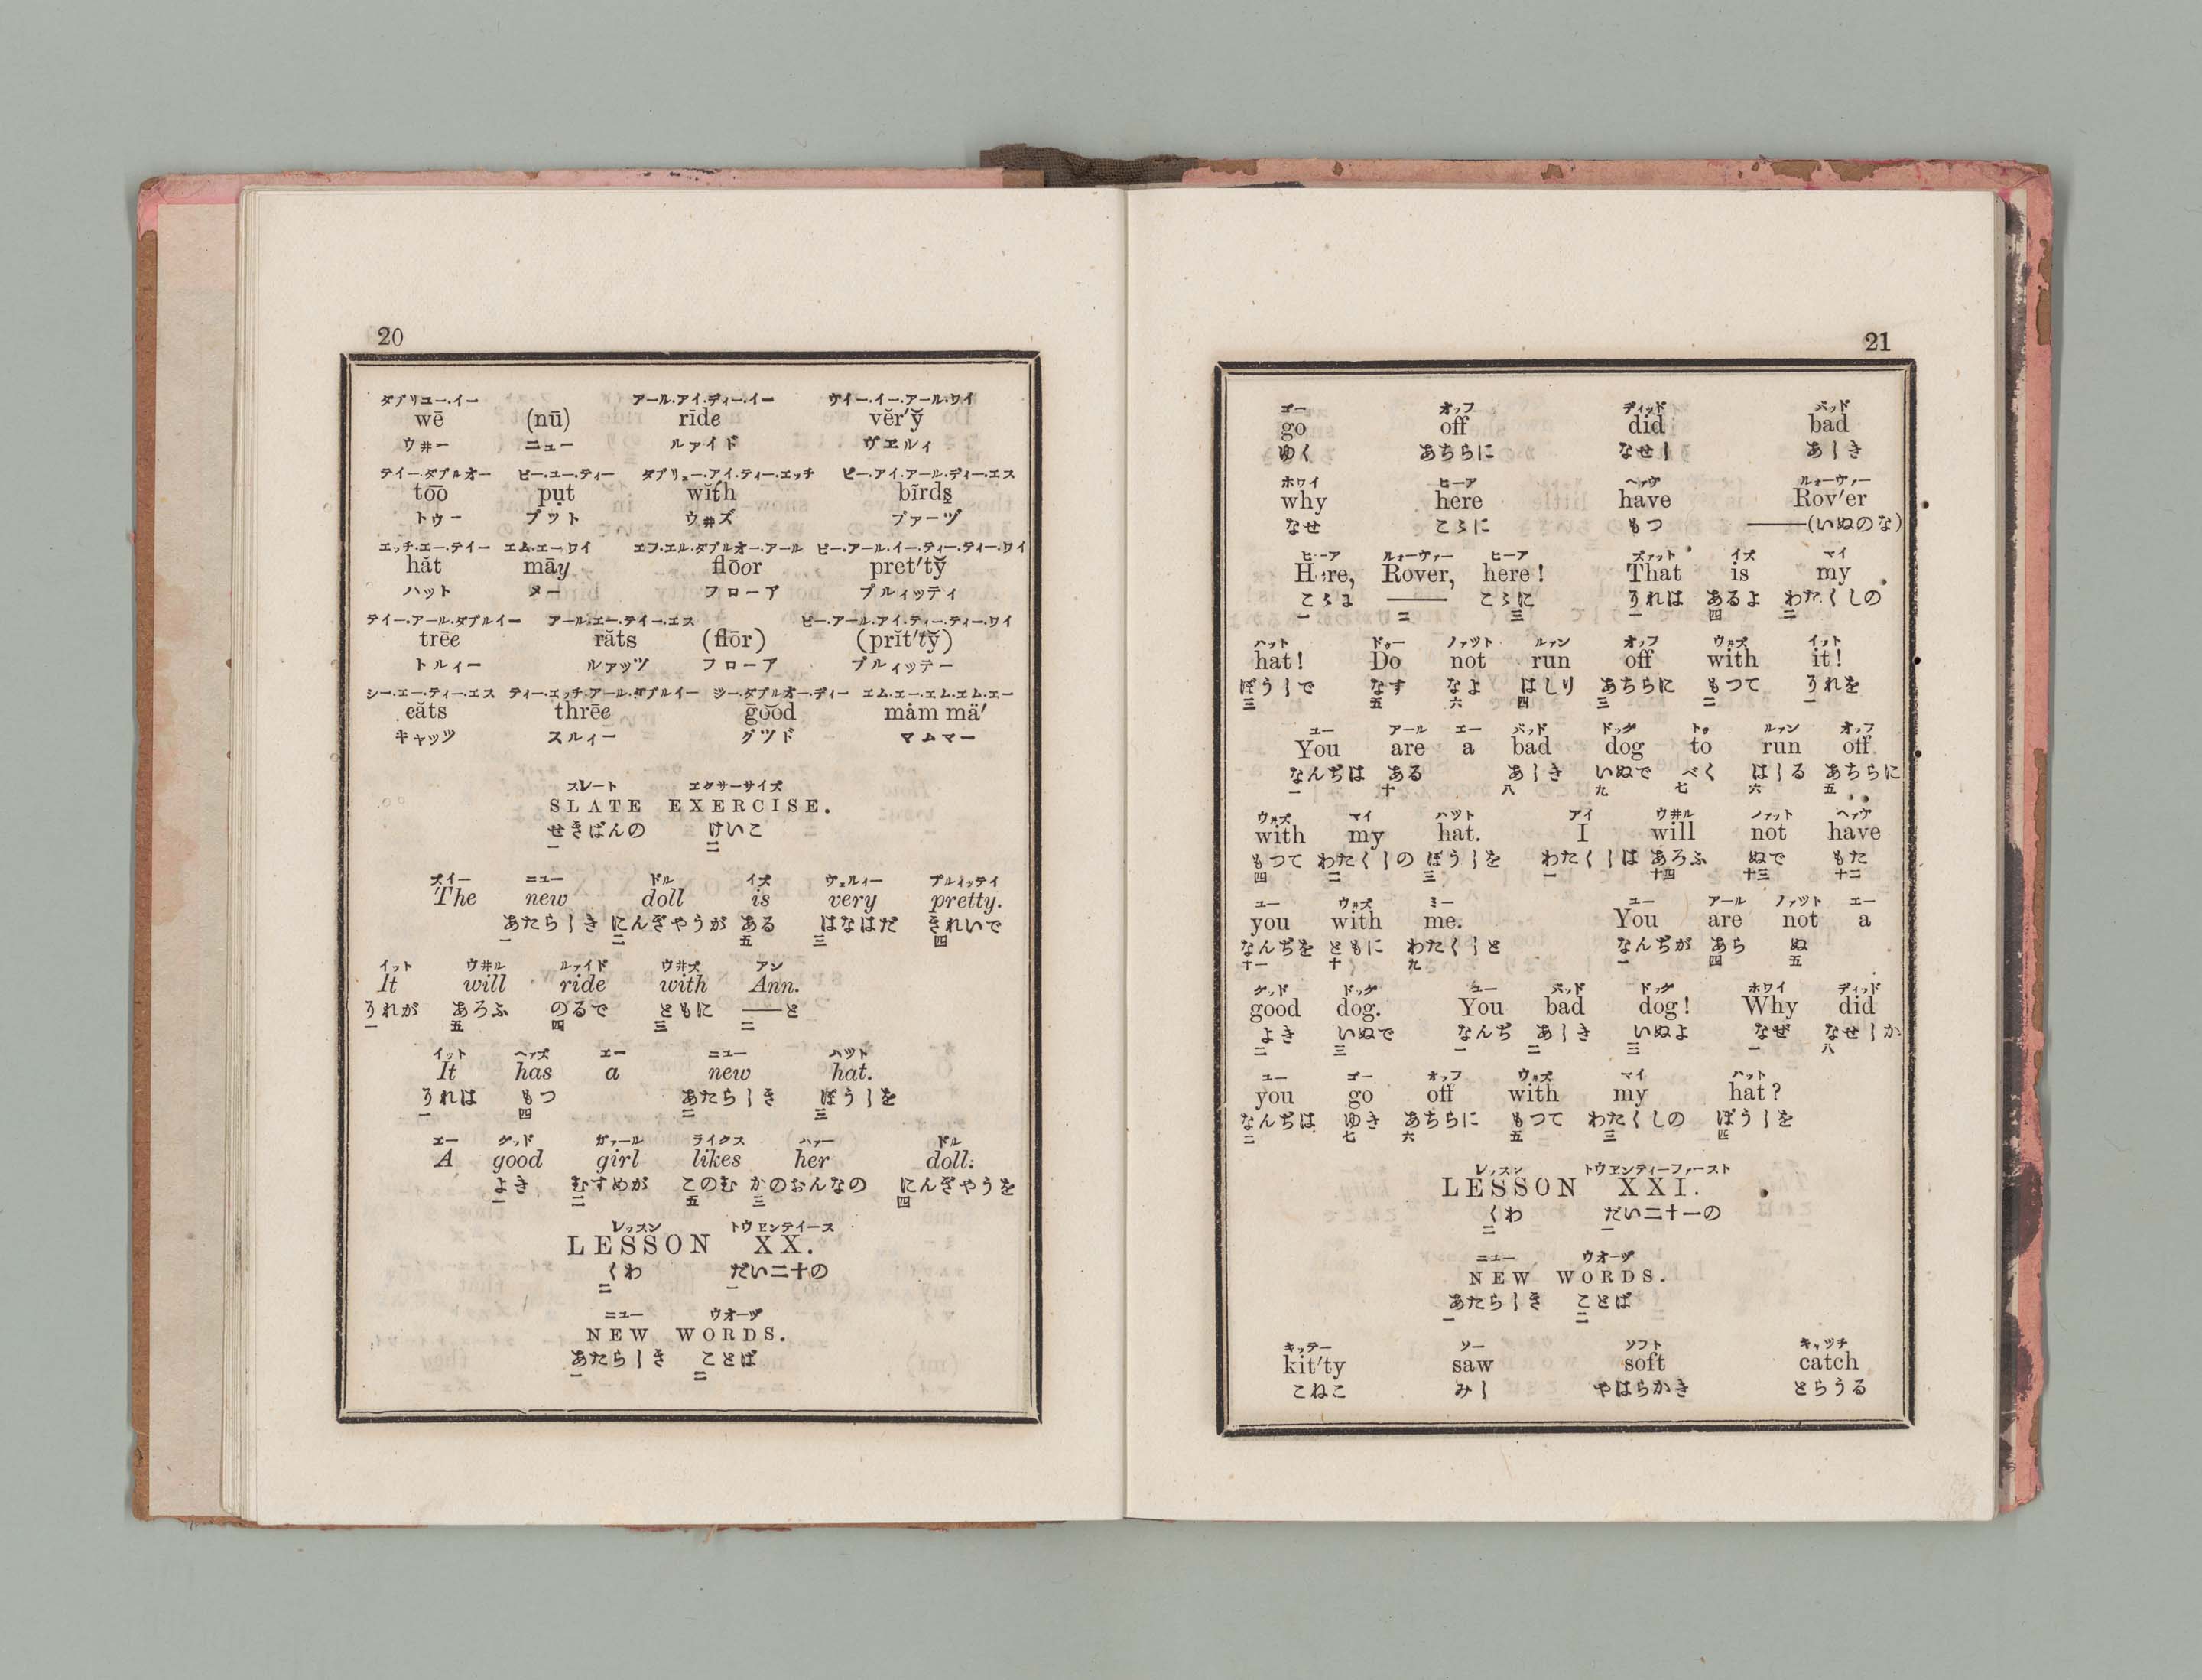 20
ダブリユー.イー アール.アイ.ディー.イー ヴイー.イー.アール.ワイ
wē (nū) rīde vĕr′y̆
ウ井ー ニュー ルァイド ヴヱルィ
テイー.ダブルオー ピー.ユー.ティー ダブリュー.アイ.ティー.エッチ ビー.アイ.アール.ディー.エス
to͞o pụt wĭth bīrds̱
トゥー プット ウ井ズ ブァーヅ
エッチ.エー.テイー エム.エー.ワイ エフ.エル.ダブルオー.アール ピー.アール.イー.ティー.ティー.ワイ
hăt māy flōor pret′ty̆
ハット メー フローア プルィッティ
テイー.アール.ダブルイー アール.エー.テイー.エス ピー.アール.アイ.ティー.ティー.ワイ
trēe răts (flōr) (prĭt′ty̆)
トルィー ルァッツ フローア プルィッテー
シー.エー.ティー.エス ティー.エッチ.アール.ダブルイー ジー.ダブルオー.ディー エム.エー.エム.エム.エー
eăts thrēe ḡo͝od mȧm mä′
キャッツ スルィー グツド マムマー
スレート エクサーサイズ
SLATE EXERCISE.
せきばんの けいこ
一 二
ズイー ニュー ドル イズ ヴェルィー プルィッテイ
The new doll is very pretty.
あたら〡き にんぎやうが ある はなはだ きれいで
一 二 五 三 四
イット ウ井ル ルァイド ウ井ズ アン
It will ride with Ann.
それが あろふ のるで ともに ――と
一 五 四 三 二
イット ヘァズ エー ニュー ハツト
It has a new hat.
それは もつ あたら〡き ばう〡を
一 四 二 三
エー グッド ガァール ライクス ハァー ドル
A good girl likes her doll.
よき むすめが このむ かのおんなの にんぎやうを
一 二 五 三 四
レッスン トウヱンテイース
LESSON XX.
くわ だい二十の
二 一
ニュー ウオーヅ
NEW WORDS.
あたら〡き ことば
一 二
21
ゴー オッフ ディッド バッド
go off did bad
ゆく あちらに なせ〡 あ〡き
ホワイ ヒーア ヘァヴ ルォーヴァー
why here have Rov′er
なせ こゝに もつ ――(いぬのな)
ヒーア ルォーヴァー ヒーア ズァット イズ マイ
Here, Rover, here! That is my
こゝよ ―― こゝに それは あるよ わたくしの
一 二 三 一 四 二
ハット ドゥー ノァツト ルァン オッフ ウ井ズ イット
hat! Do not run off with it!
ぼう〡で なす なよ はしり あちらに もつて それを
三 五 六 四 三 二 一
ユー アール エー バッド ドッグ トゥ ルァン オッフ
You are a bad dog to run off
なんぢは ある あ〡き いぬで べく は〡る あちらに
一 十 八 九 七 六 五
ウ井ズ マイ ハツト アイ ウ井ル ノァット ヘァヴ
with my hat. I will not have
もつて わたく〡の ぼう〡を わたく〡は あろふ ぬで もた
四 二 三 一 十四 十三 十二
ユー ウ井ズ ミー ユー アール ノァツト エー
you with me. You are not a
なんぢを ともに わたく〡と なんぢが あら ぬ
十一 十 九 一 四 五
グッド ドッグ ユー バッド ドッグ ホワイ ディッド
good dog. You bad dog! Why did
よき いぬで なんぢ あ〡き いぬよ なぜ なせ〡か
二 三 一 二 三 一 八
ユー ゴー オッフ ウ井ズ マイ ハット
you go off with my hat?
なんぢは ゆき あちらに もつて わたくしの ぼう〡を
二 七 六 五 三 四
レッスン トウヱンティーファースト
LESSON XXI.
くわ だい二十一の
二 一
ニュー ウオーヅ
NEW WORDS.
あたら〡き ことば
一 二
キッテー ソー ソフト キャツチ
kit′ty saw soft catch
こねこ み〡 やはらかき とらうる